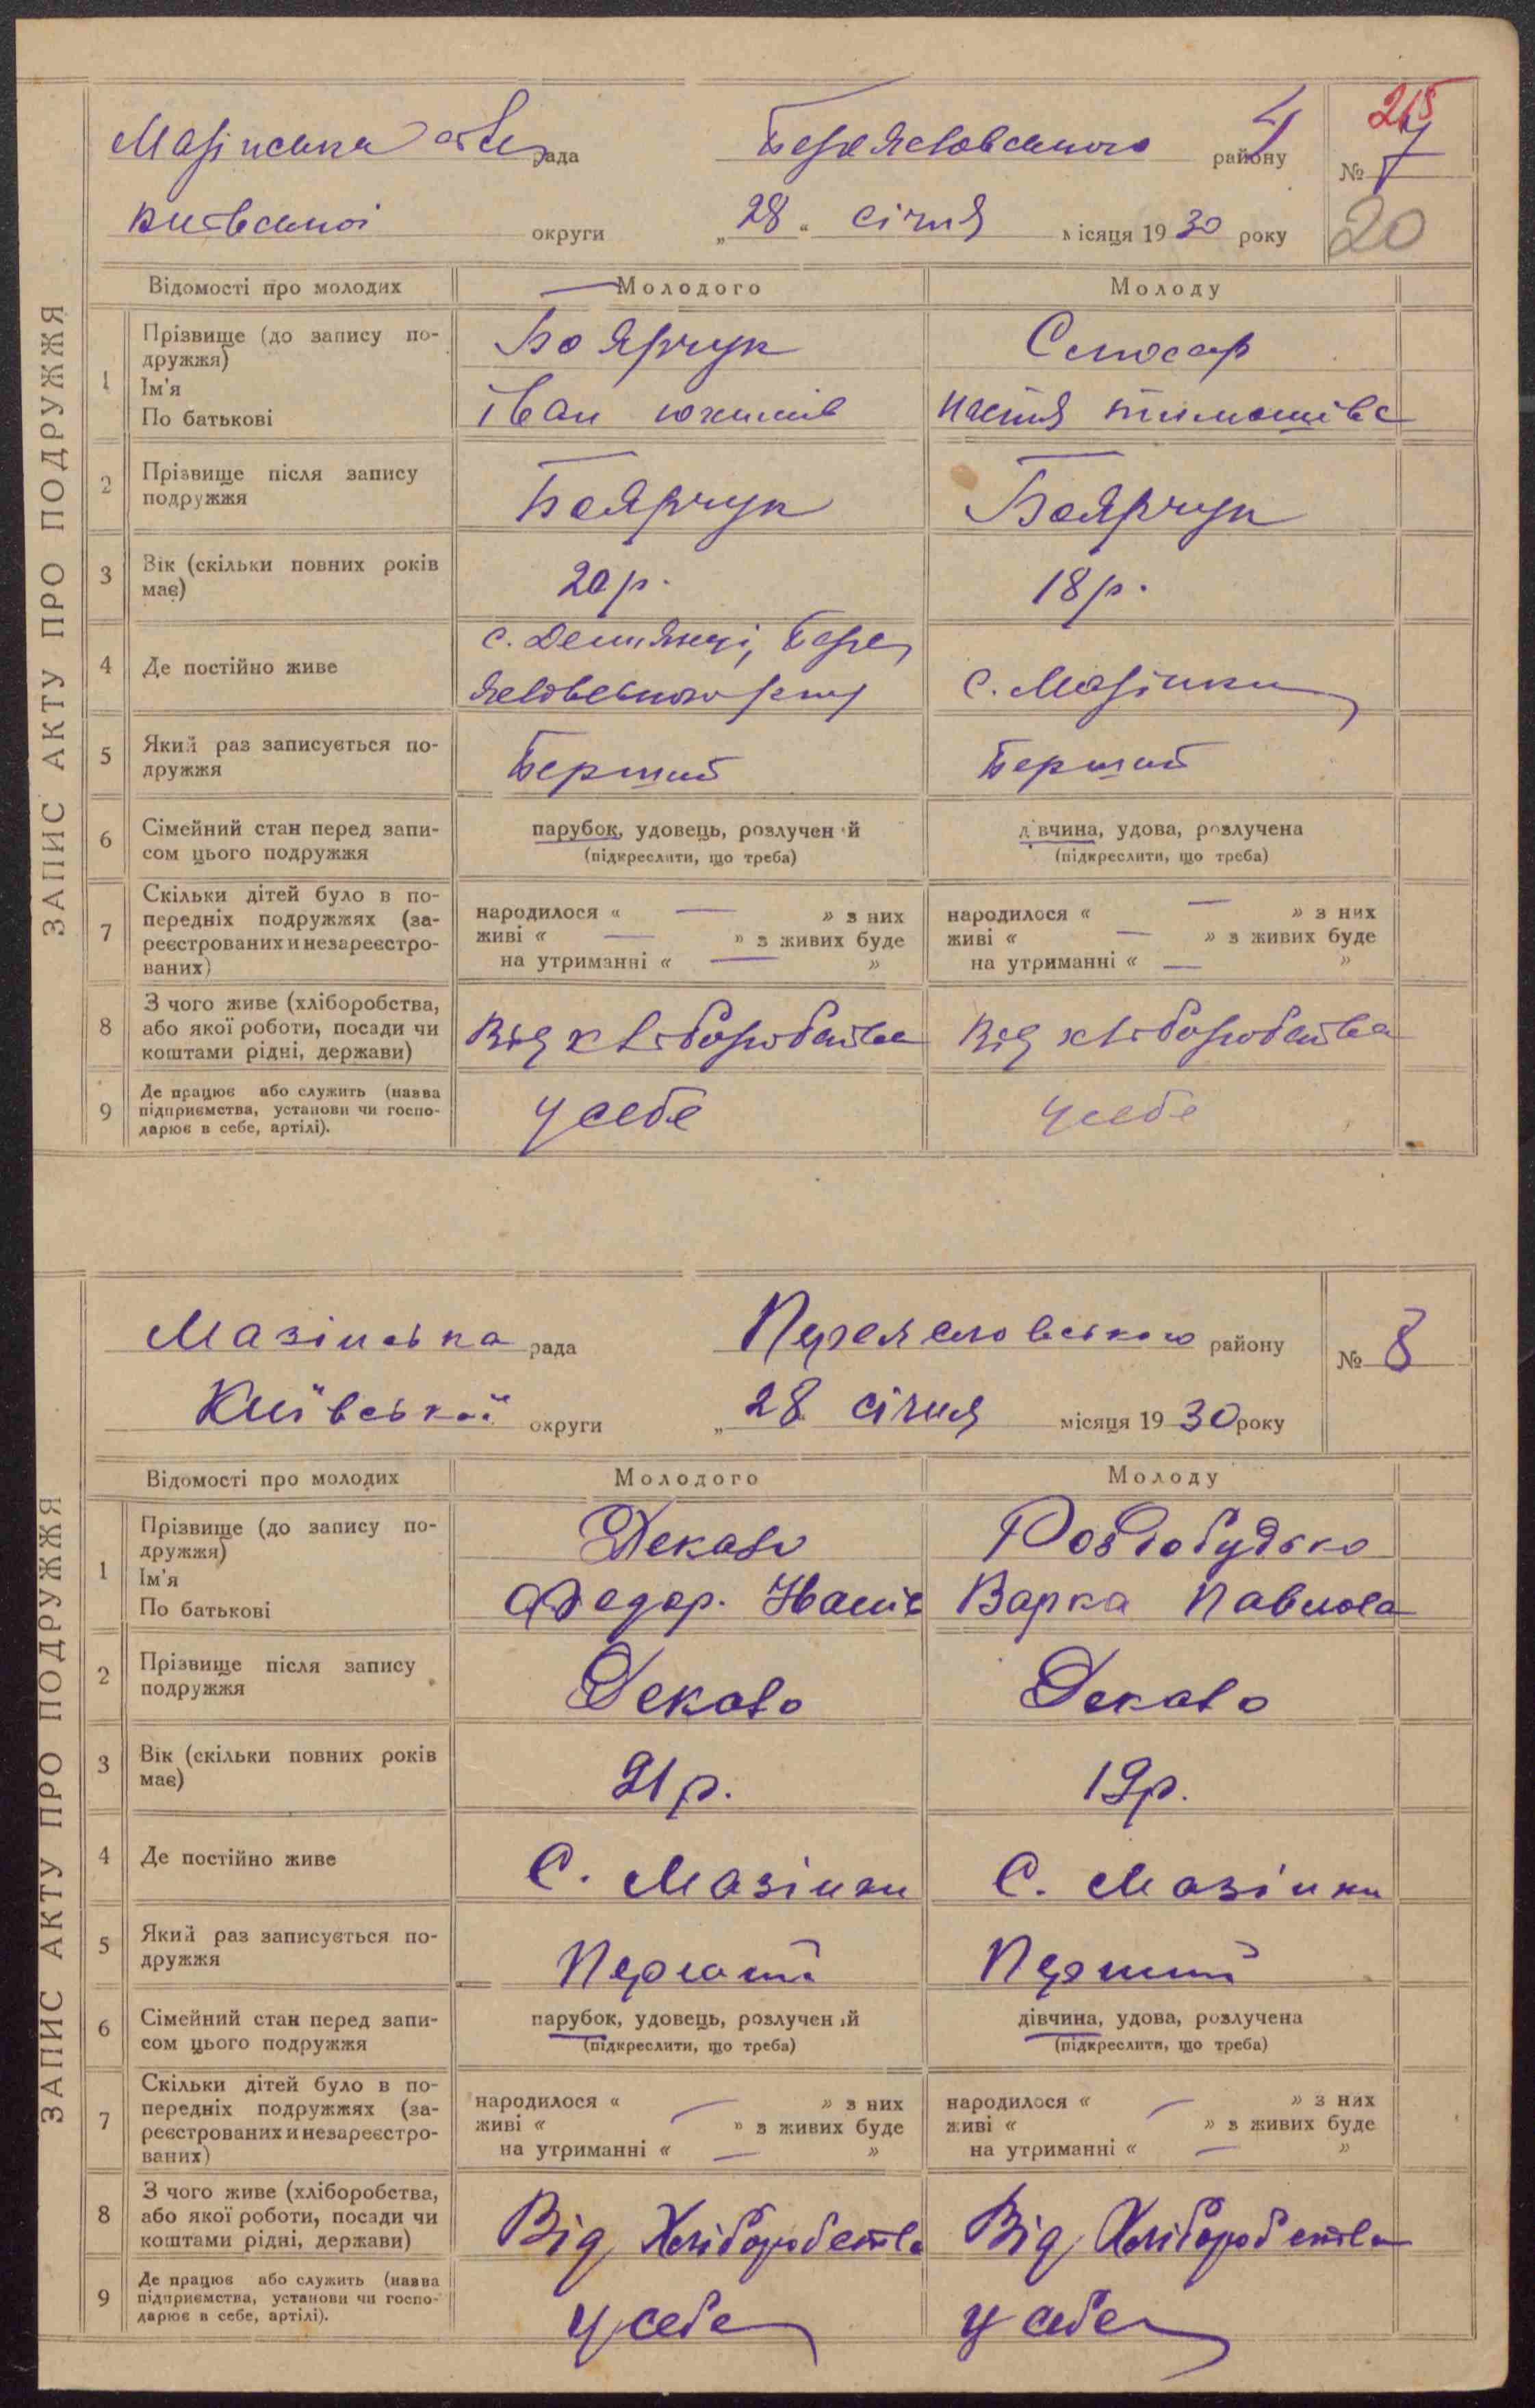 ЗАПИС АКТУ ПРО ПОДРУЖЖЯ
Мазінська рада Переяславського району № 7
215
20
Київської округи „28“ січня місяця 1930 року
Відомості про молодих Молодого Молоду
1 Прізвище (до запису по-
дружжя) Боярчук Слюсар
Ім'я
По батькові Іван Юхимів Настя Тимошівс
2 Прізвище після запису
подружжя Боярчук Боярчук
3 Вік (скільки повних років
має) 20 р. 18 р.
4 Де постійно живе с. Демянці, Пере
яславського р-ну с. Мазінки
5 Який раз записується по-
дружжя Перший Перший
6 Сімейний стан перед запи-
сом цього подружжя парубок, удовець, розлучений дівчина, удова, розлучена
(підкреслити, що треба) (підкреслити, що треба)
7 Скільки дітей було в по-
передніх подружжях (за-
реєстрованих и незареєстро-
ваних)
народилося « — » з них народилося « — » з них
живі « — » з живих буде живі « — » з живих буде
на утриманні « — » на утриманні « — »
8 З чого живе (хліборобства,
або якої роботи, посади чи
коштами рідні, держави) Від хліборобства Від хліборобства
9 Де працює або служить (назва
підприємства, установи чи госпо-
дарює в себе, артілі). у себе у себе
ЗАПИС АКТУ ПРО ПОДРУЖЖЯ
Мазінська рада Переяславського району № 8
Київської округи „28 січня місяця 1930 року
Відомості про молодих Молодого Молоду
1 Прізвище (до запису по-
дружжя)
Ім'я
По батькові Федор. Іванів Варка Павлова
2 Прізвище після запису
подружжя
3 Вік (скільки повних років
має) 21 р. 19 р.
4 Де постійно живе С. Мазінки С. Мазінки
5 Який раз записується по-
дружжя Перший Перший
6 Сімейний стан перед запи-
сом цього подружжя парубок, удовець, розлучений дівчина, удова, розлучена
(підкреслити, що треба) (підкреслити, що треба)
7 Скільки дітей було в по-
передніх подружжях (за-
реєстрованих и незареєстро-
ваних)
народилося « — » з них народилося « — » з них
живі « » з живих буде живі « » з живих буде
на утриманні « — » на утриманні « — »
8 З чого живе (хліборобства,
або якої роботи, посади чи
коштами рідні, держави) Від Хліборобства Від Хліборобства
9 Де працює або служить (назва
підприємства, установи чи госпо-
дарює в себе, артілі). у себе у себе